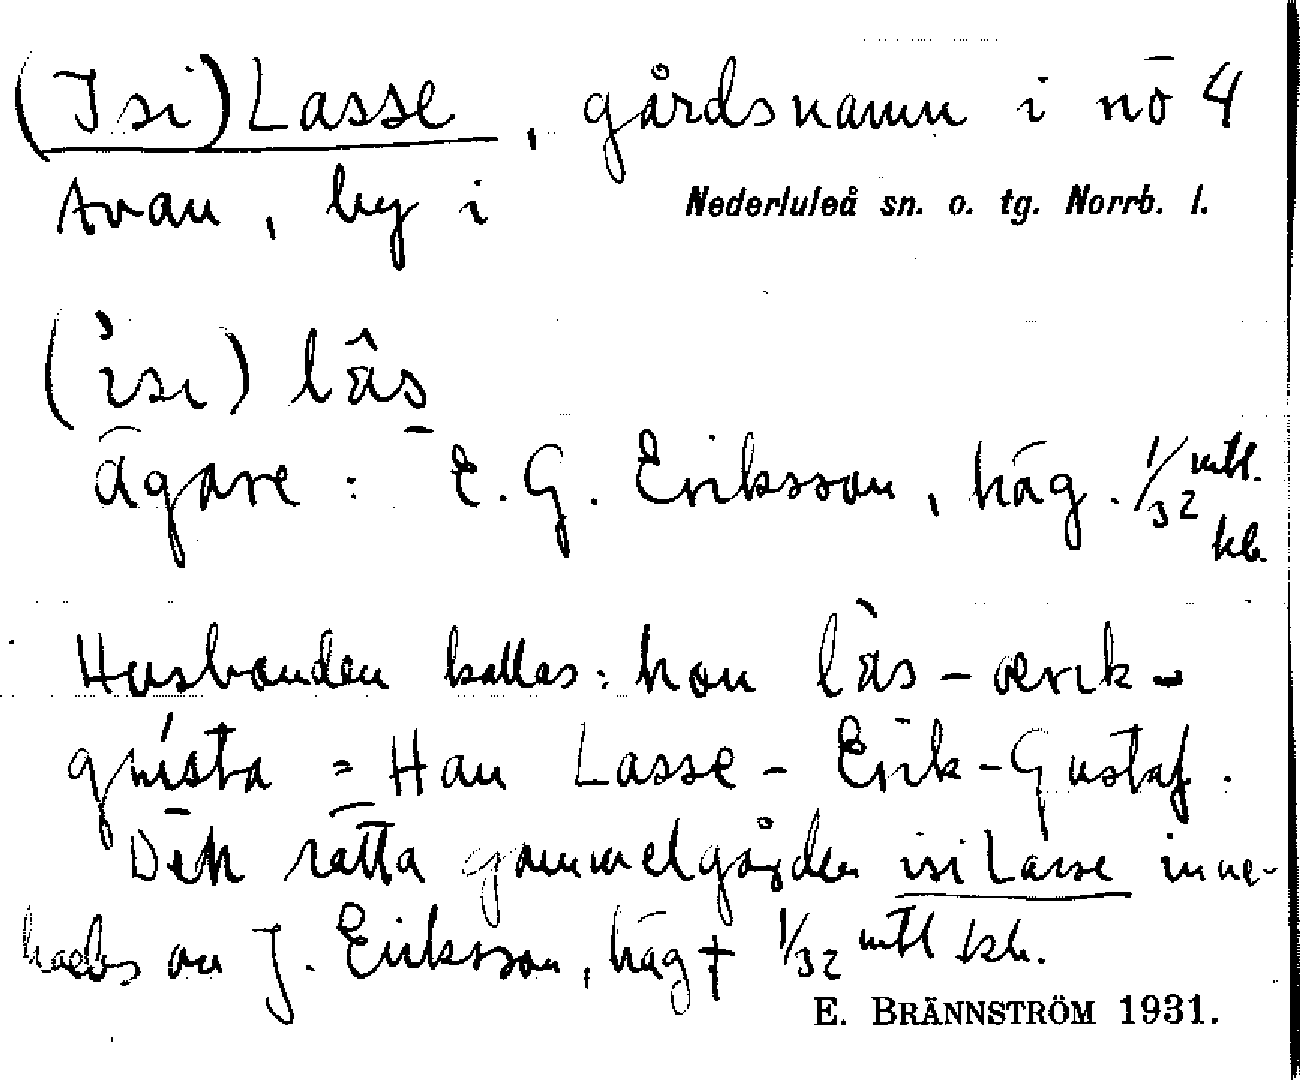 (Isi) Lasse, gårdsnamn i nö 4
Avan, by i Nederluleå sn. o. tg. Norrb. l.
(ìsi) lâs
ägare: E. G. Eriksson, häg. 1/32 mtl. kb.
Husbonden kallas: han làs-ærık-
gústa = Han Lasse-Erik-Gustaf.
Den rätta gammelgården isi Lasse inne-
hades av J. Eriksson, häg † 1/32 mtl kb.
E. BRÄNNSTRÖM 1931.